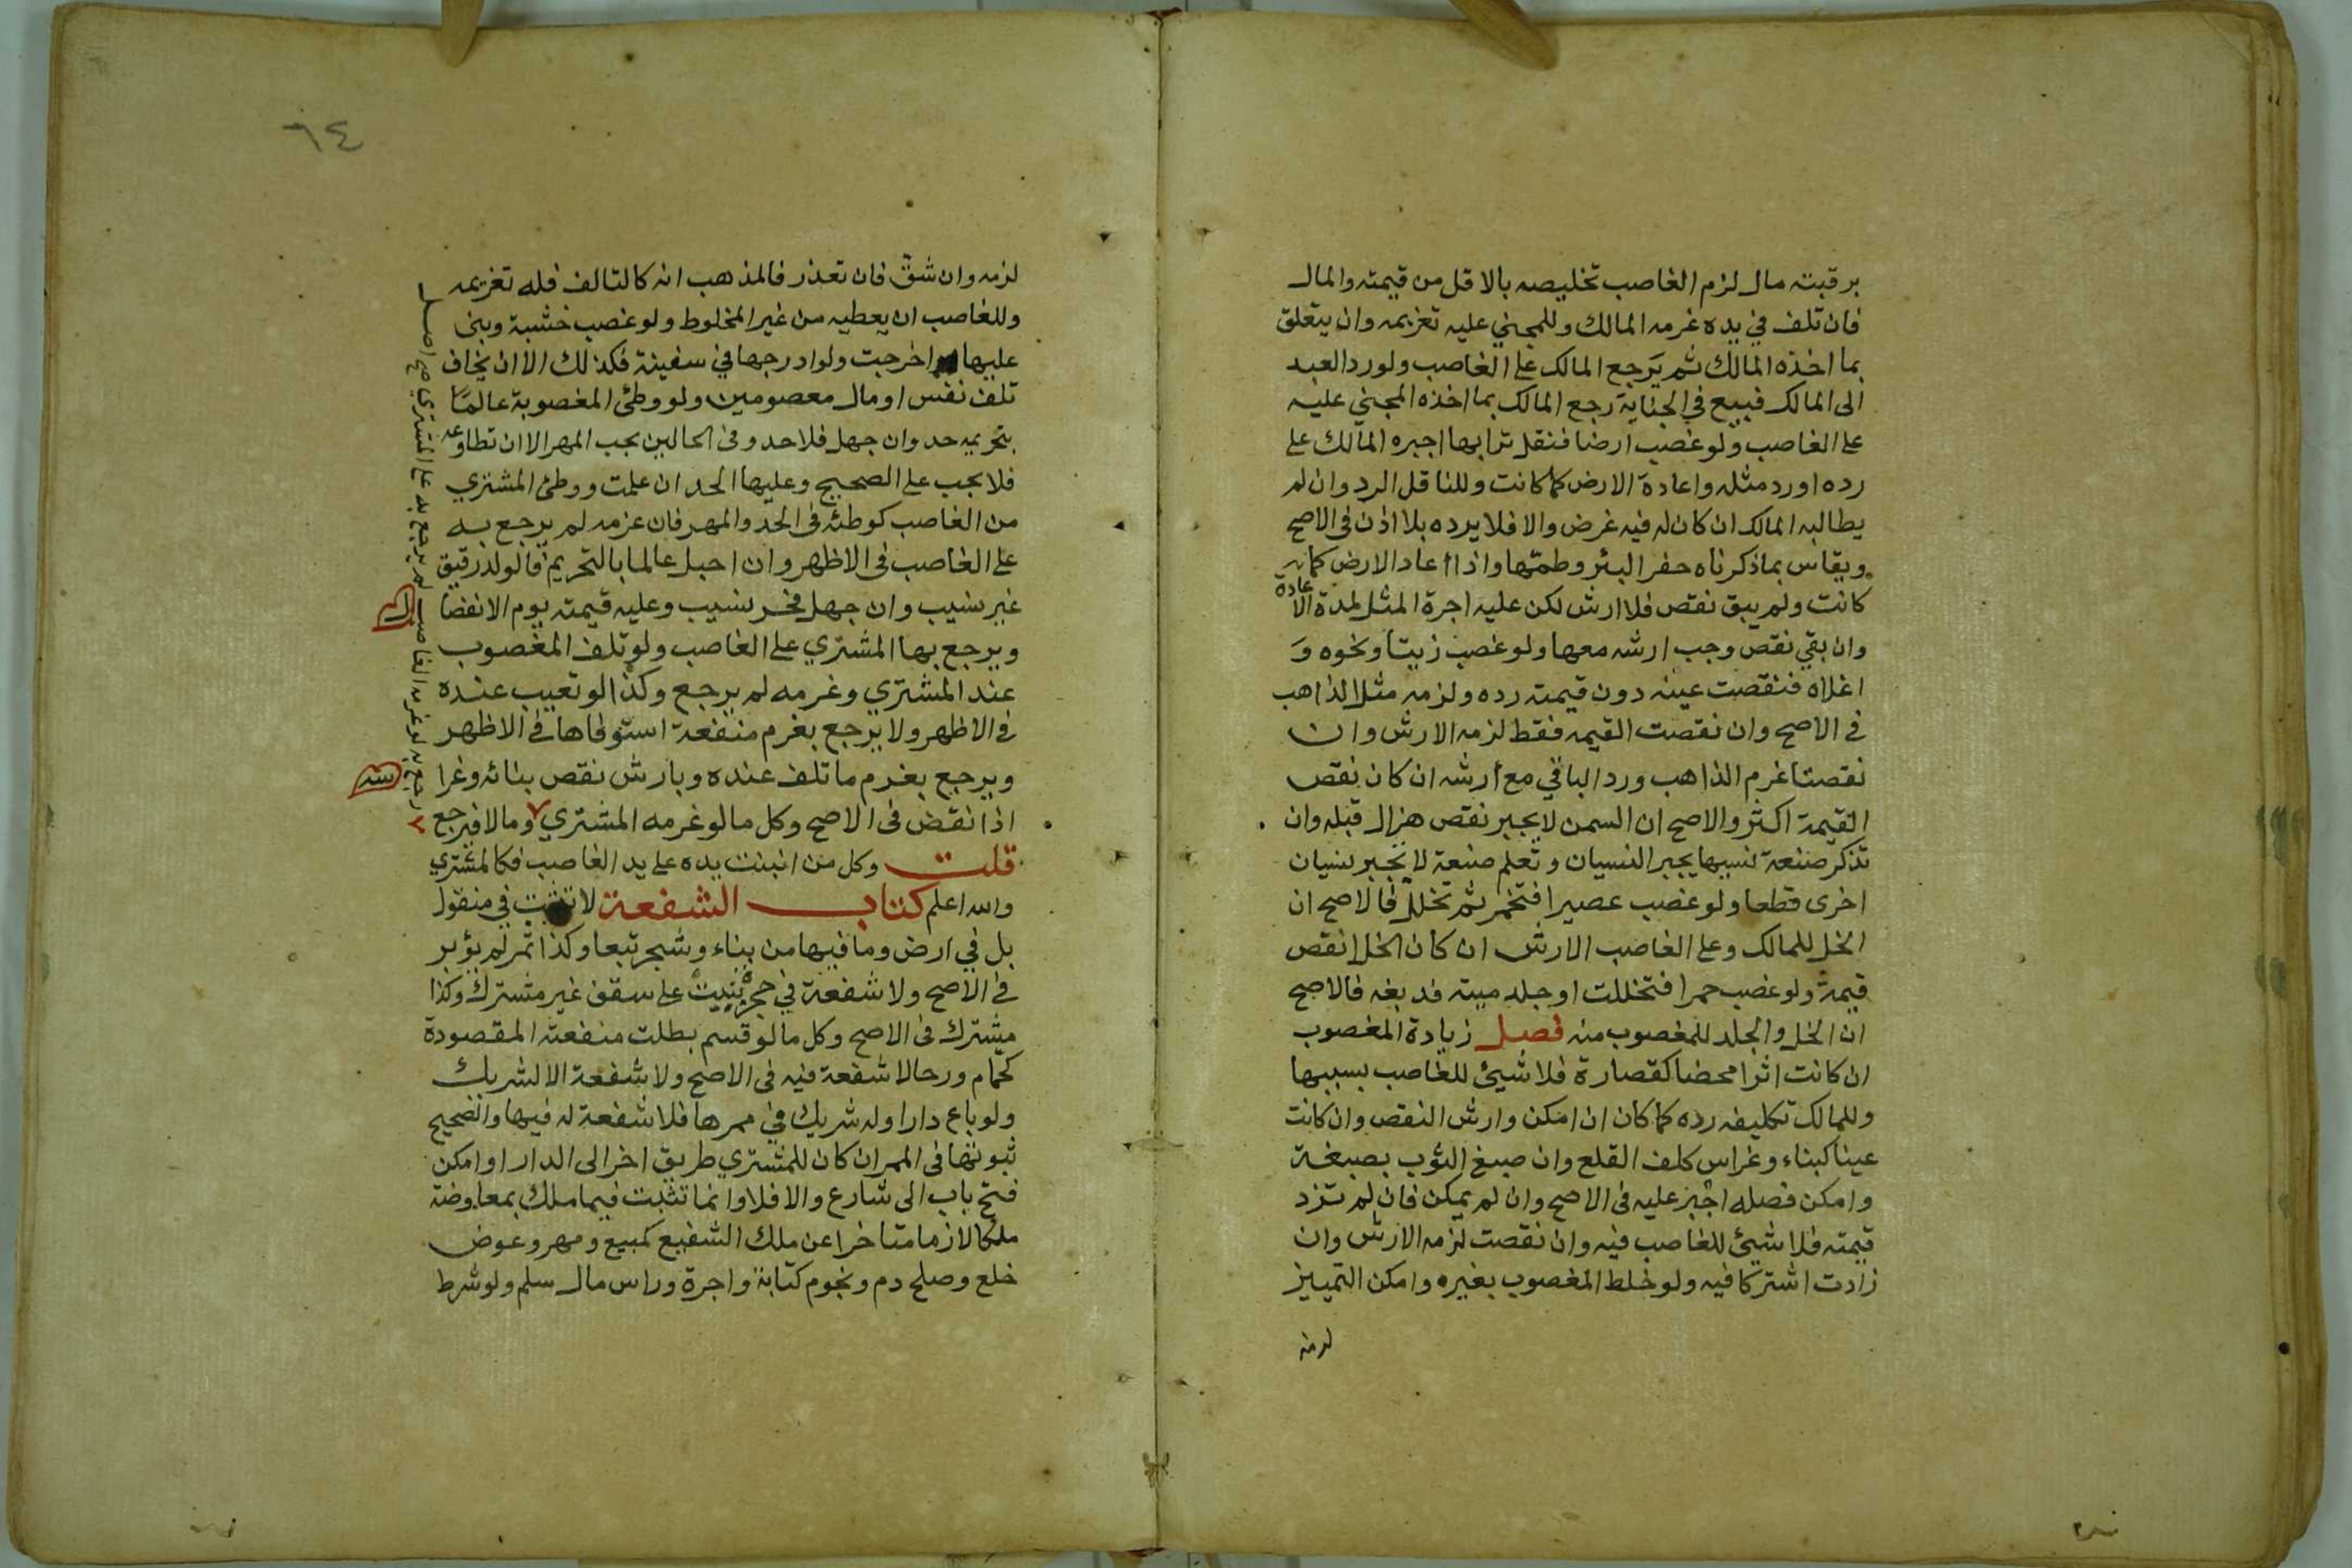 برقبته مال لزم الغاصب تخليصه بالاقل من قيمته والمال
فان تلف في يده غرمه المالك وللمجني عليه تغريمه وان يتعلق
بما اخذه المالك ثم يرجع المالك على الغاصب ولو رد العبد
الى المالك فبيع في الجناية رجع المالك بما اخذه المجني عليه
على الغاصب ولو غصب ارضا فنقل ترابها اجبره المالك على
رده او رد مثله واعادة الارض كما كانت وللناقل الرد وان لم
يطالبه المالك ان كان له فيه غرض والا فلا يرده بلا اذن في الاصح
ويقاس بما ذكرناه حفر البئر وطمها واذا اعاد الارض كما
كانت ولم يبق نقص فلا ارش لكن عليه اجرة المثل لمدة الاعادة
وان بقي نقص وجب ارشه معها ولو غصب زيتا ونحوه و
اغلاه فنقصت عينه دون قيمته رده ولزمه مثل الذاهب
في الاصح وان نقصت القيمه فقط لزمه الارش وان
نقصتا غرم الذاهب ورد الباقي مع ارشه ان كان نقص
القيمة اكثر والاصح ان السمن لا يجبر نقص هزال قبله وان
تذكر صنعة نسيها يجبر النسيان وتعلم صنعة لا يجبر نسيان
اخرى قطعا ولو غصب عصيرا فتخمر ثم تخلل فالاصح ان
الخل للمالك وعلى الغاصب الارش ان كان الخل انقص
قيمة ولو غصب خمرا فتخللت او جلد ميته فدبغه فالاصح
ان الخل والجلد للمغصوب منه فصل زيادة المغصوب
ان كانت اثرا محضا كقصارة فلا شيئ للغاصب بسببها
وللمالك تكليفه رده كما كان ان امكن وارش النقص وان كانت
عينا كبناء وغراس كلف القلع وان صبغ الثوب بصبغة
وامكن فصله اجبر عليه في الاصح وان لم يمكن فان لم تزد
قيمته فلا شيئ للغاصب فيه وان نقصت لزمه الارش وان
زادت اشتركا فيه ولو خلط المغصوب بغيره وامكن التمييز
لزمه
٦٤
لزمه وان شق فان تعذر فالمذهب انه كالتالف فله تغريمه
وللغاصب ان يعطيه من غير المخلوط ولو غصب خشبة وبنى
عليها اخرجت ولو ادرجها في سفينة فكذلك الا ان يخاف
تلف نفس او مال معصومين ولو وطئ المغصوبة عالما
بتحريمه حد وان جهل فلا حد وفى الحالين يجب المهر الا ان تطاوعه
فلا يجب على الصحيح وعليها الحد ان علمت ووطئ المشتري
من الغاصب كوطئه في الحد والمهر فان غرمه لم يرجع به
على الغاصب في الاظهر وان احبل عالما بالتحريم فالولد رقيق
غير نسيب وان جهل فحر نسيب وعليه قيمته يوم الانفصال
ويرجع بها المشتري على الغاصب ولو تلف المغصوب
عند المشتري وغرمه لم يرجع وكذا لو تعيب عنده
في الاظهر ولا يرجع بغرم منفعة استوفاها في الاظهر
ويرجع بغرم ما تلف عنده وبارش نقص بنائه وغراسه
اذا نقض في الاصح وكل ما لو غرمه المشتري وما لا فيرجع
رجع به لو غرمه الغاصب لم يرجع به على المشتري صح اصل
قلت وكل من انبنت يده على يد الغاصب فكالمشتري
والله اعلم كتاب الشفعة لا تثبت في منقول
بل في ارض وما فيها من بناء وشجر تبعا وكذا ثمر لم يؤبر
في الاصح ولا شفعة في حجرة بنيت على سقف غير مشترك وكذا
مشترك في الاصح وكل ما لو قسم بطلت منفعته المقصودة
كحمام ورحا لا شفعة فيه في الاصح ولا شفعة الا لشريك
ولو باع دارا وله شريك في ممرها فلا شفعة له فيها والصحيح
ثبوتها في الممر ان كان للمشتري طريق اخر الى الدار او امكن
فتح باب الى شارع والا فلا وانما تثبت فيما ملك بمعاوضة
ملكا لازما متاخرا عن ملك الشفيع كمبيع ومهر وعوض
خلع وصلح دم ونجوم كتابة واجرة وراس مال سلم ولو شرط